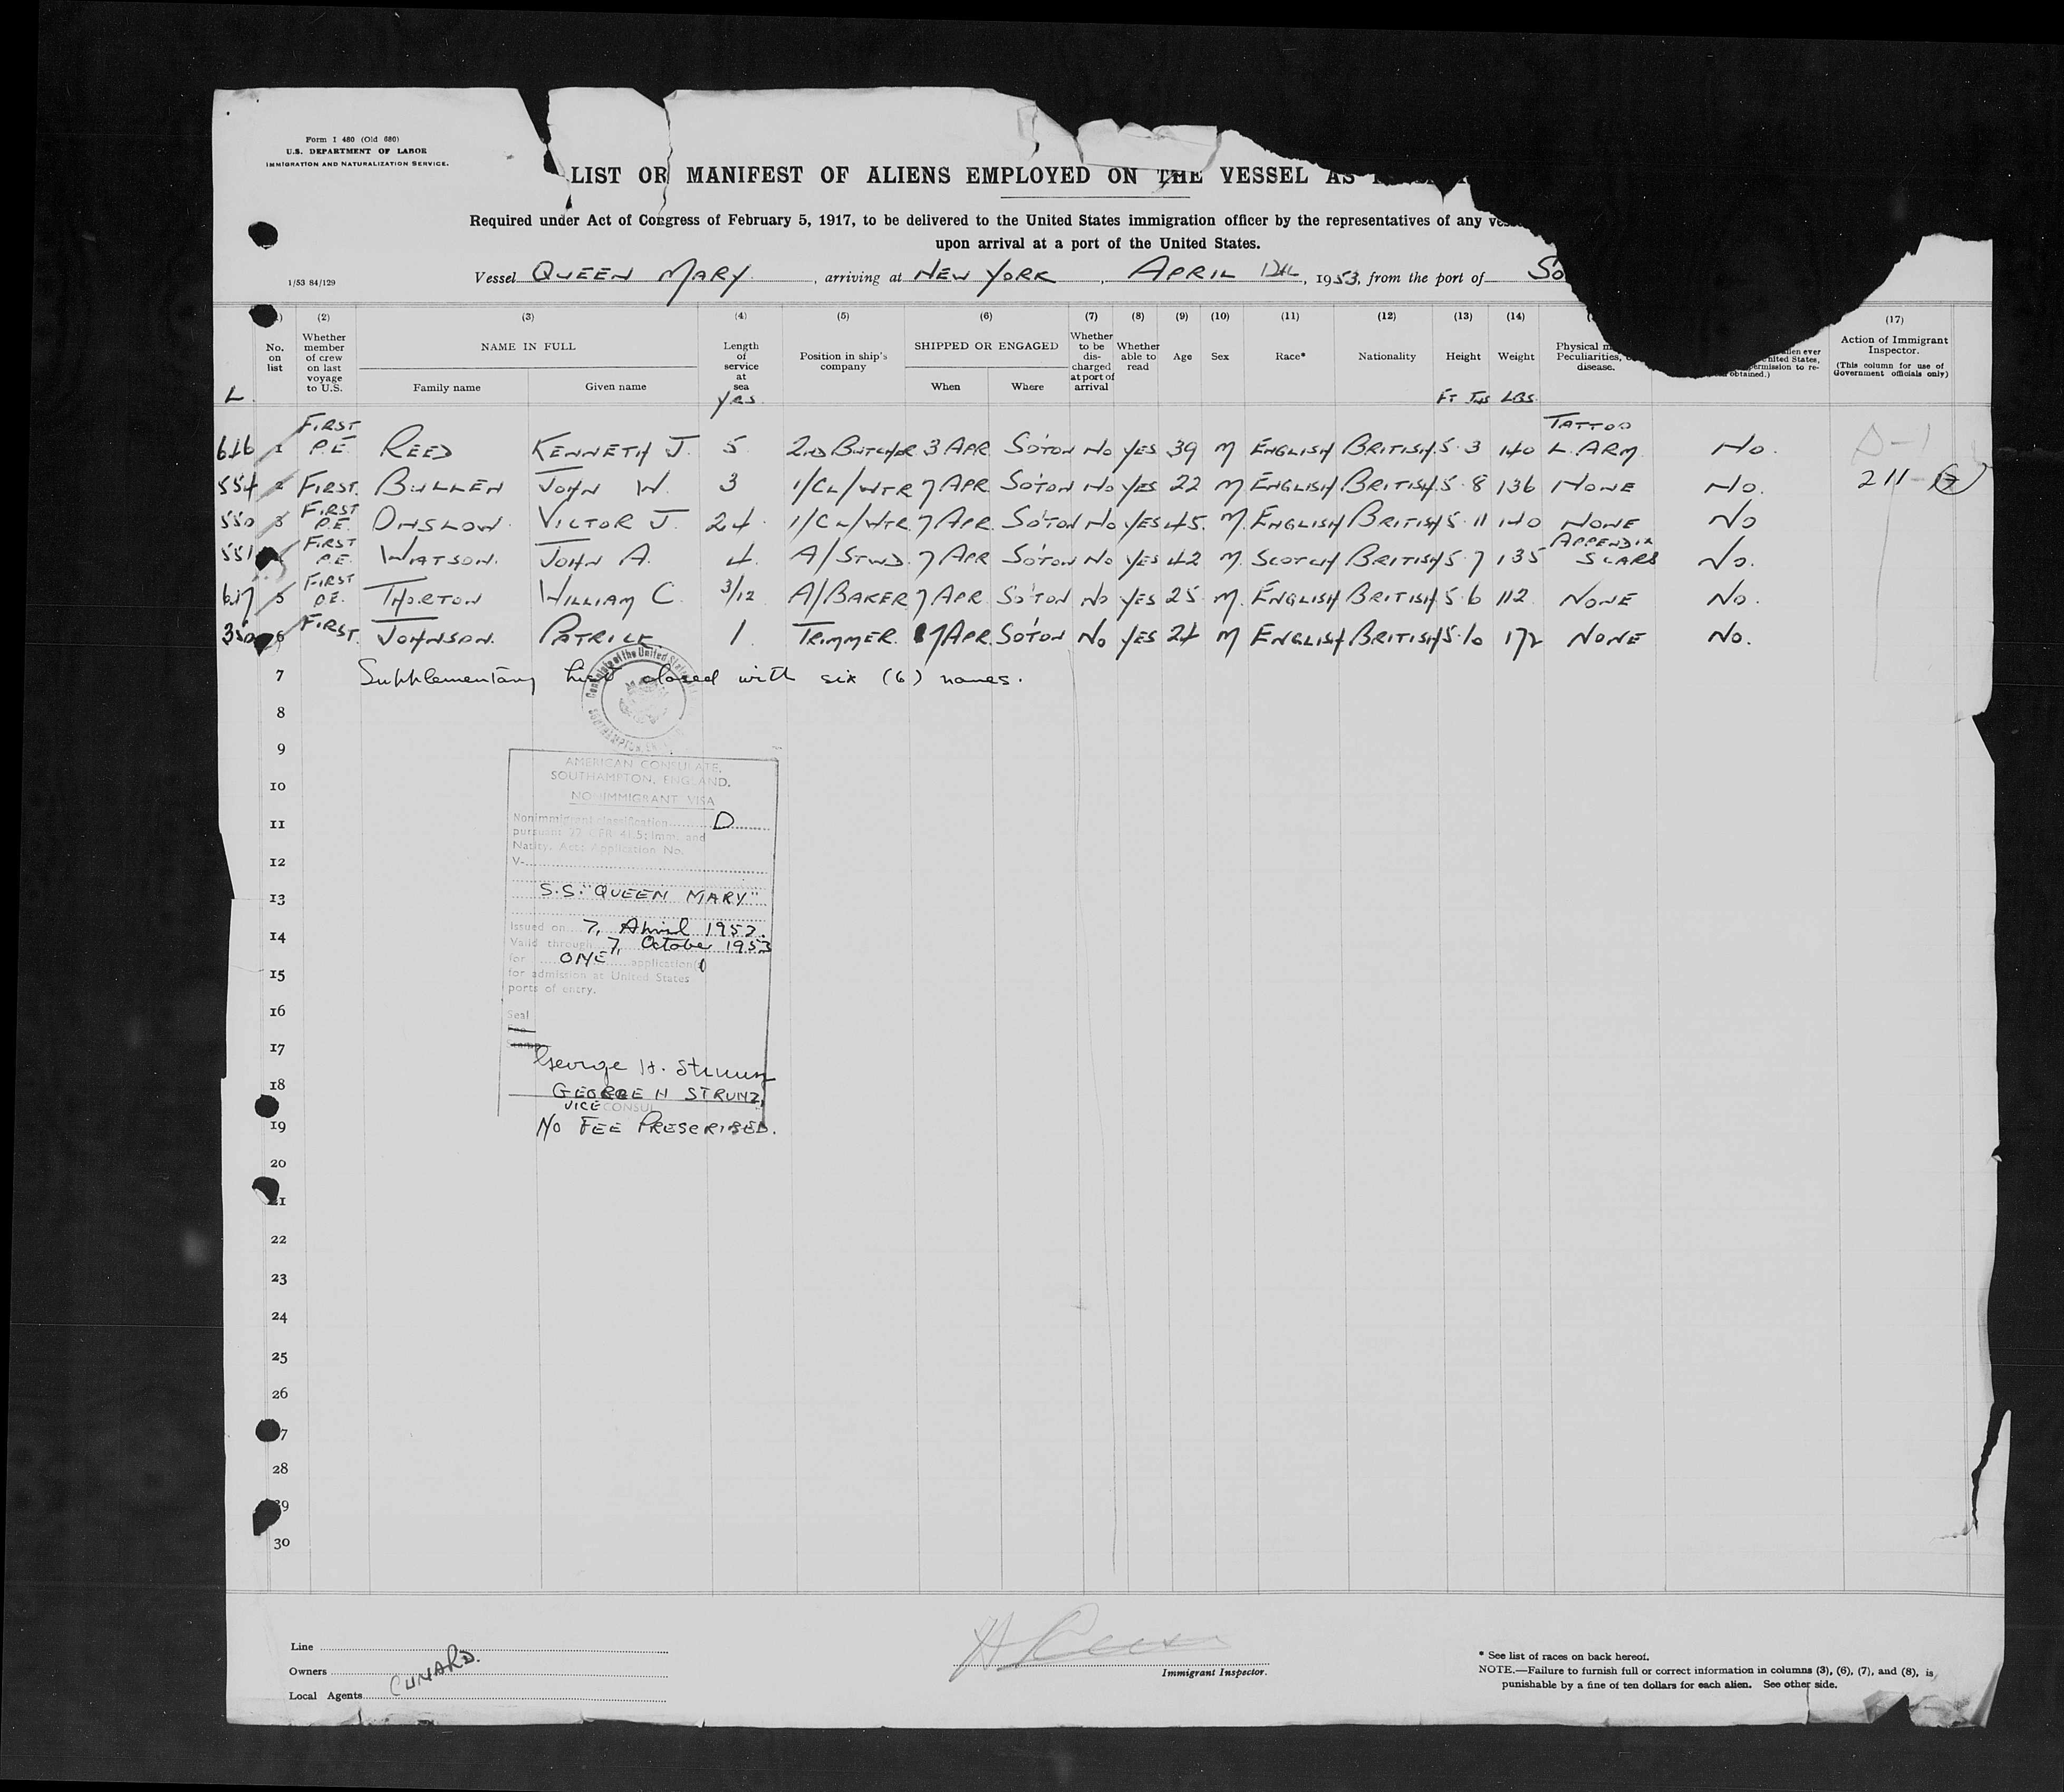 Form I 480 (Old 680)
U.S. DEPARTMENT OF LABOR
IMMIGRATION AND NATURALIZATION SERVICE.
LIST OR MANIFEST OF ALIENS EMPLOYED ON THE VESSEL AS
Required under Act of Congress of February 5, 1917, to be delivered to the United States immigration officer by the representatives of any
upon arrival at a port of the United States.
1/53 84/129
Vessel QUEEN MARY, arriving at NEW YORK, APRIL 1953, from the port of So
(2) (3) (4) (5) (6) (7) (8) (9) (10) (11) (12) (13) (14) (17)
No. on list
Whether member of crew on last voyage to U.S.
NAME IN FULL
Family name Given name
Length of service at sea
YRS
Position in ship's company
SHIPPED OR ENGAGED
When Where
Whether to be discharged at port of arrival
Whether able to read
Age Sex Race* Nationality Height Weight
FT INS LBS
Physical
Peculiarities,
disease.
Action of Immigrant Inspector.
(This column for use of Government officials only)
L
616 1 FIRST P.E. REED KENNETH J. 5 2ND BUTCHER 3 APR SO'TON NO YES 39 M ENGLISH BRITISH 5.3 140 TATTOO L. ARM NO.
554 2 FIRST. BULLEN JOHN W. 3 1/CL/WTR 7 APR SO'TON NO YES 22 M ENGLISH BRITISH 5.8 136 NONE NO. 211
550 3 FIRST P.E. ONSLOW. VICTOR J. 24 1/CL/WTR 7 APR. SO'TON NO YES 45. M. ENGLISH BRITISH 5.11 140 NONE NO
551 FIRST P.E. WATSON. JOHN A. 4. A/STWD. 7 APR SO'TON NO YES 42 M. SCOTCH BRITISH 5.7 135 APPENDIX SCARS NO.
617 5 FIRST P.E. THORTON WILLIAM C. 3/12 A/BAKER 7 APR. SO'TON NO YES 25 M. ENGLISH BRITISH 5.6 112 NONE NO.
350 6 FIRST. JOHNSON. PATRICK 1 TRIMMER. 7 APR. SO'TON NO YES 24 M ENGLISH BRITISH 5.10 172 NONE NO.
7 Supplementary list closed with six (6) names.
8
9
10
11
12
13
14
15
16
17
18
19
20
22
23
24
25
26
28
30
AMERICAN CONSULATE,
SOUTHAMPTON, ENGLAND.
NONIMMIGRANT VISA
Nonimmigrant classification D
pursuant 22 CFR 41.5; Imm. and
Natlty. Act: Application No.
V-
S.S. "QUEEN MARY"
Issued on 7, April 1953.
Valid through 7, October 1953
for ONE application()
for admission at United States
ports of entry.
Seal
George H. Strunz
GEORGE H STRUNZ,
VICE CONSUL
NO FEE PRESCRIBED.
Line
Owners CUNARD.
Local Agents
Immigrant Inspector.
* See list of races on back hereof.
NOTE.—Failure to furnish full or correct information in columns (3), (6), (7), and (8), is
punishable by a fine of ten dollars for each alien. See other side.